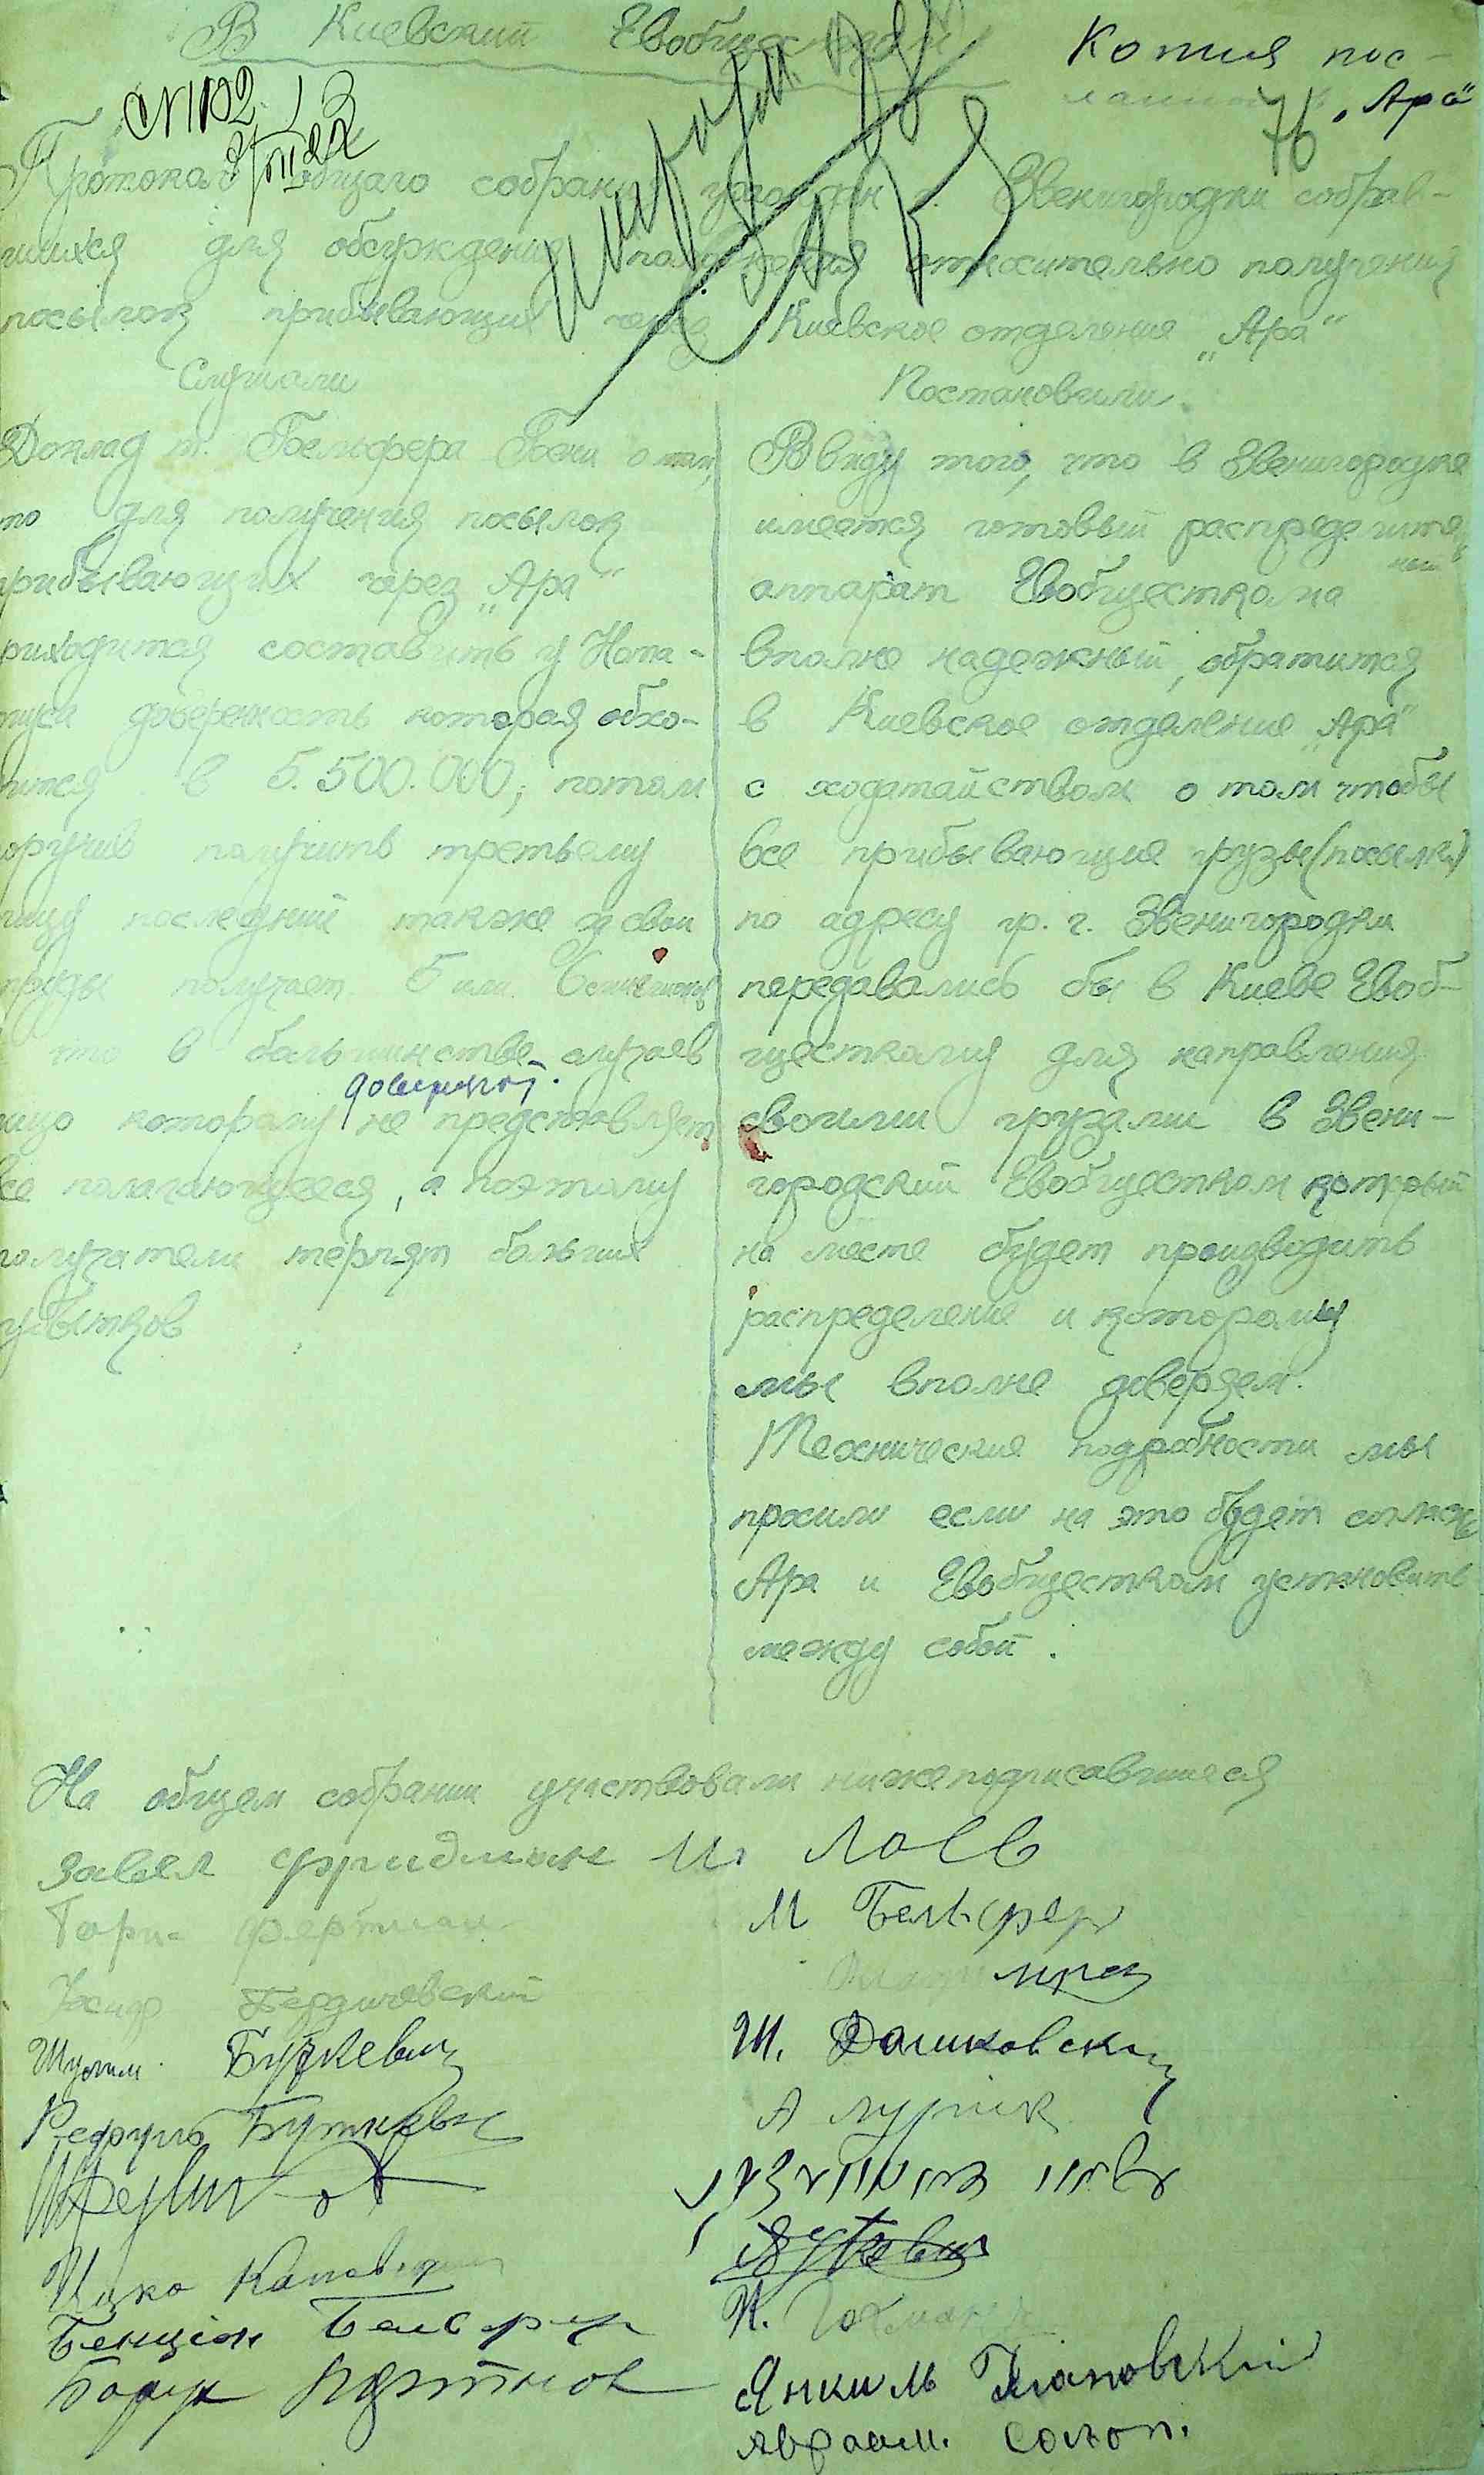 В Киевский Евобщестком
Копия пос-
ланной в „Ара“
76
N 1192
Протокол общаго собрания граждан г. Звенигородки собрав-
шихся для обсуждения положения относительно получения
посылок прибывающих через Киевское отделение „Ара“
Слушали
Доклад т. Бельфера Бени о том,
то для получения посылок
рибывающих через „Ара“
риходится составить у Нота-
риуса доверенность которая обхо-
ится в 5.500.000; потом
оручив получить третьему
лицу последний также за свои
труды получает 5 или 6
что в большинстве случаев
доверител.
лицо которому не представляет
все полагающееся, а поэтому
получатели терпят больших
убытков
Постановили.
В виду того, что в Звенигородке
имеется готовый распределитель
ный
аппарат Евобщесткома
вполне надежный, обратится
в Киевское отделение „Ара“
с ходатайством о том чтобы
все прибывающие грузы (посылки)
по адресу гр. г. Звенигородки
передавались бы в Киеве Евоб-
щесткому для направления
своими грузами в Звени-
городский Евобщестком который
на месте будет производить
распределение и которому
мы вполне доверяем.
Технические подробности мы
просили если на это будет согласие
Ара и Евобщестком установить
между собой.
На общем собрании участвовали нижеподписавшиеся
Завел Фридман И. Лоев
М Бельфер
Иосиф Бердичевский
Шулим Буткевич
Ш. Дашковский
Рефуль Буткевич
А Лурик
Буткевич
Бенцион Бельфер
К. Гохман
Борух
Янкиль Клановский
Авраам. Солоп.